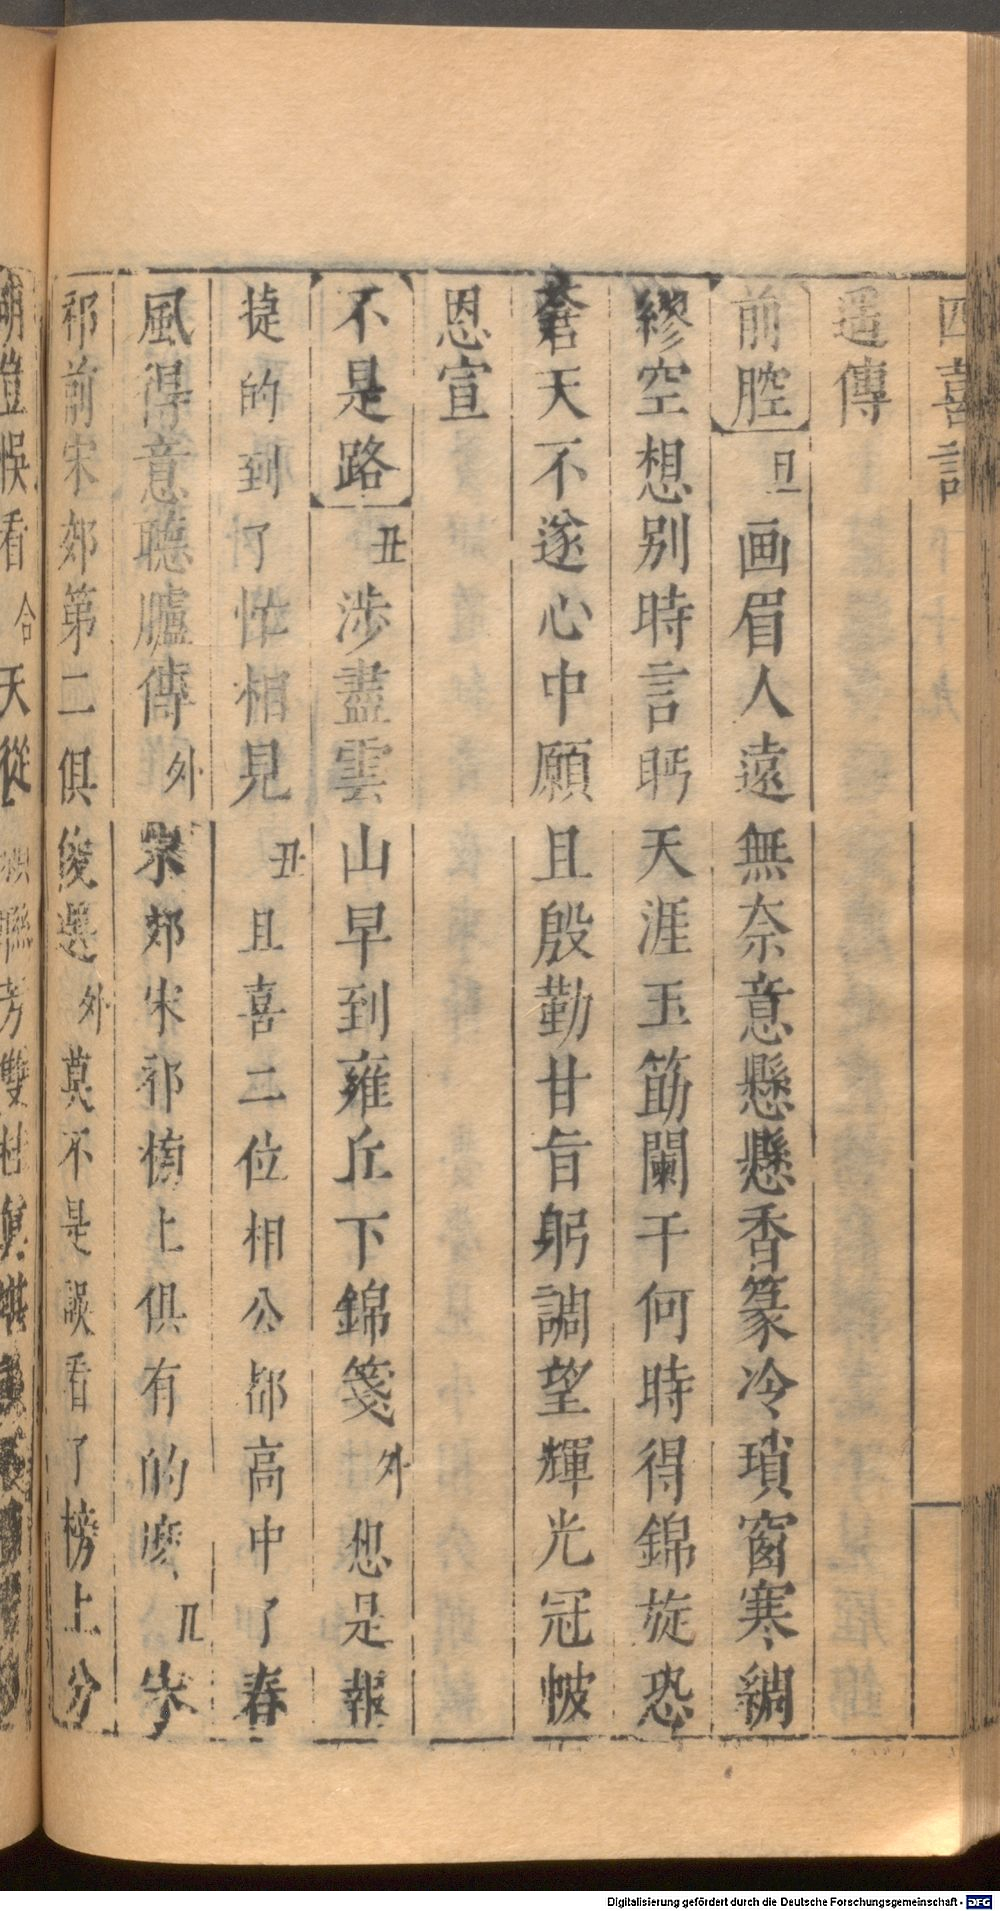 四喜記
遇傳
前腔 旦 画眉人遠無奈意懸懸香篆冷瑣窗寒綢
繆空想別時言盻天涯玉筯闌干何時得錦旋恐
蒼天不遂心中願且殷勤甘旨躬調望輝光冠帔
恩宣
不是路 丑 涉盡雲山早到雍丘下錦箋 外 想是報
捷的到了怹相見 丑 且喜二位相公都高中了春
風得意聽臚傳 外 宋郊宋祁榜上俱有的麽 丑 宋
祁前宋郊第二俱俊選 外 莫不是誤看了榜上分
明豈悞看 合 天從 聯芳雙
Digitalisierung gefördert durch die Deutsche Forschungsgemeinschaft - DFG